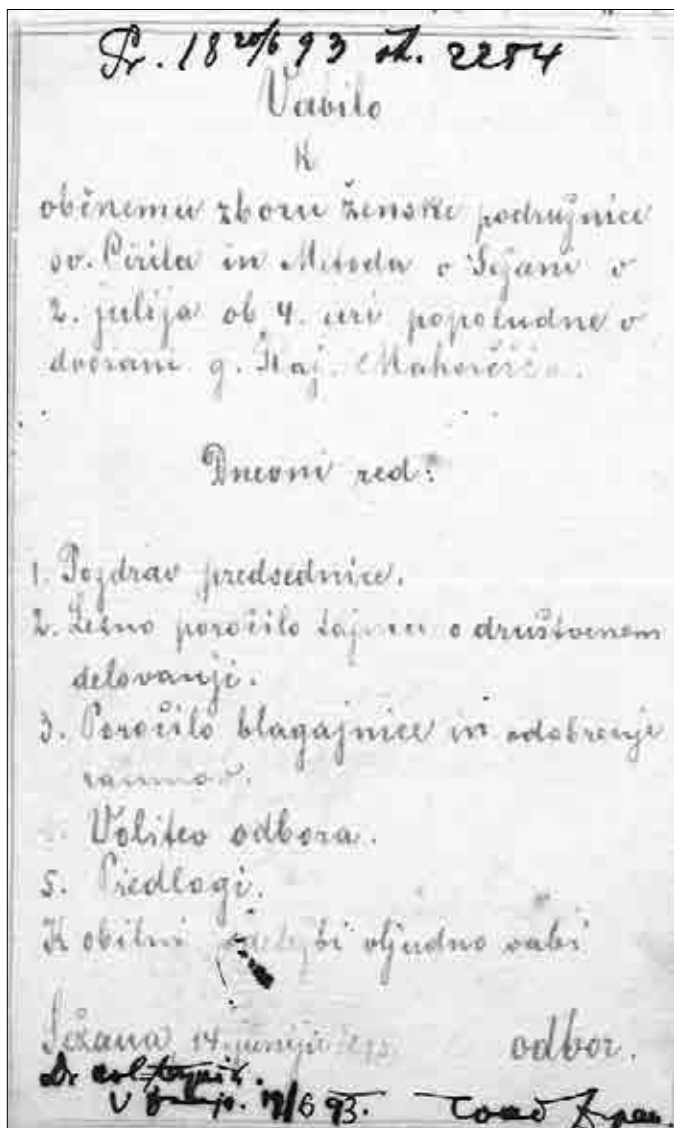 Pr. 18 20/6 93 št. 2254
Vabilo
K
občnemu zboru ženske podružnice
sv. Cirila in Metoda v Sežani v
2. julija ob 4. uri popoludne v
dvorani g. Mahorčiča.
Dnevni red:
1. Pozdrav predsednice.
2. Letno poročilo tajnice o društvenem
delovanji.
3. Poročilo blagajnice in odobrenje
računov.
Volitev odbora.
5. Predlogi.
K obilni udeležbi vljudno vabi
Sežana 14. junija odbor.
19/6 93.